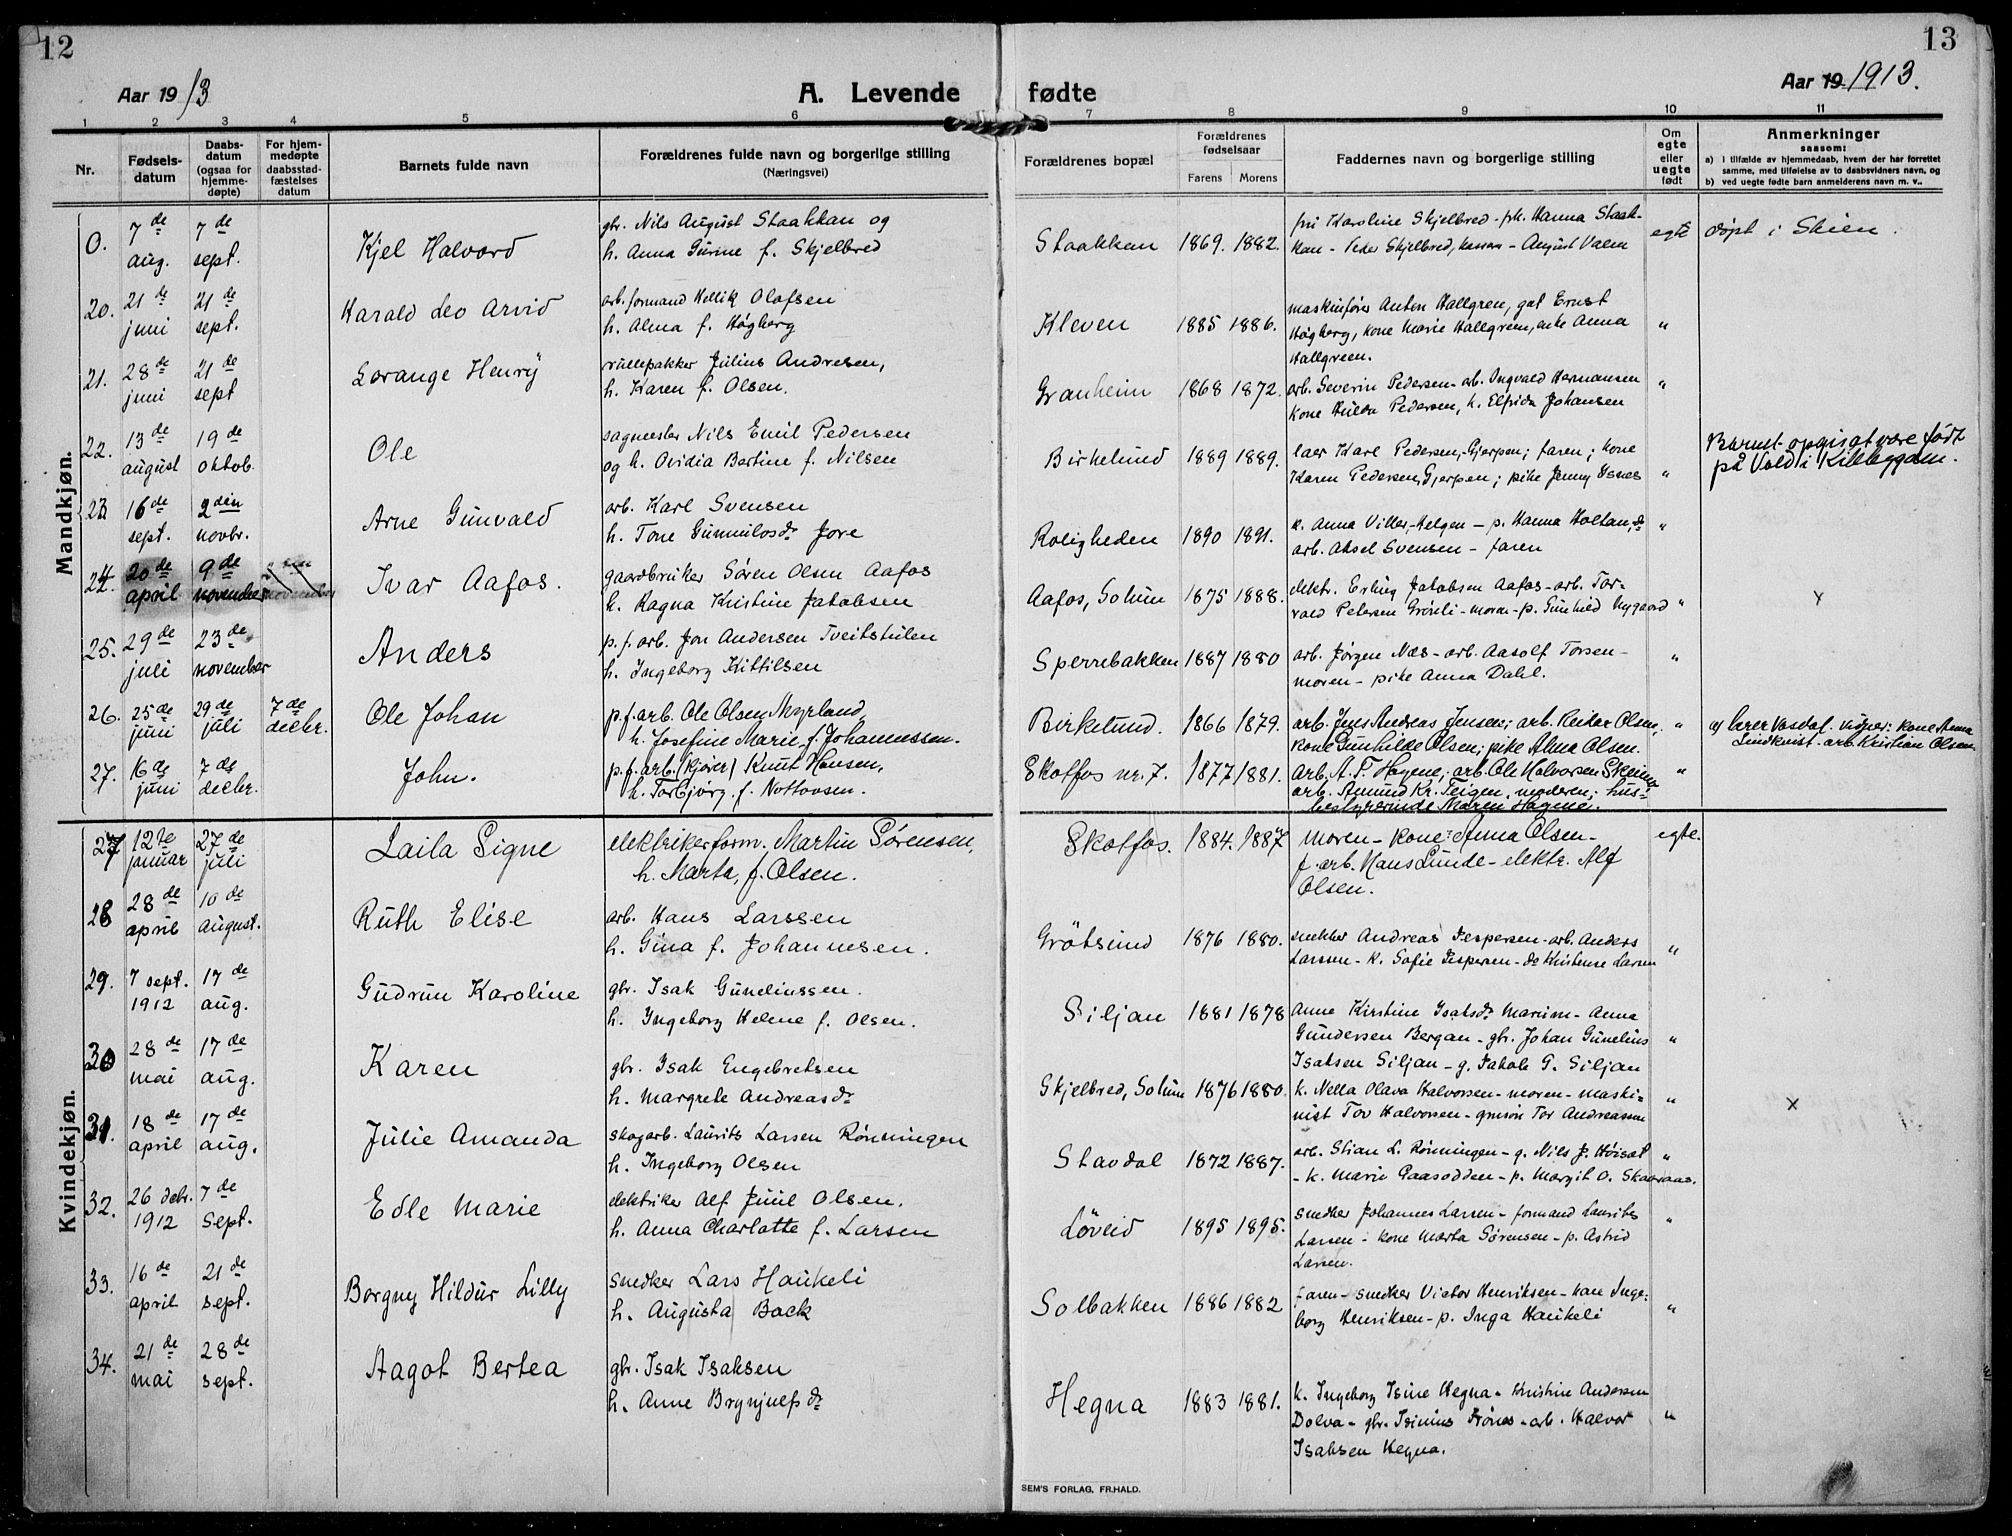 12
Aar 1913
A. Levende
1 2 3 4 5 6
Nr.
Fødsels-datum
Daabs-datum (ogsaa for hjemme-døpte)
For hjem-medøpte daabsstad-fæstelses datum
Barnets fulde navn
Forældrenes fulde navn og borgerlige stilling (Næringsvei)
Mandkjøn.
0. 7de aug. 7de sept. Kjel Halvard gbr. Nils August Staakkan og
h. Anna Gurine f. Skjelbred
20. 21de juni 21de sept. Harald Leo Arvid arb.formand Hellik Olafsen
h. Alma f. Høgberg
21. 28de juni 21de sept Lorange Henrÿ rullepakker Julius Andresen,
h. Karen f. Olsen.
22. 13de august 19de oktob. Ole sagmester Nils Emil Pedersen
og h. Ovidia Bertine f. Nilsen
23 16de sept. 2den novbr. Arne Gunvald arb. Karl Svensen
h. Tone Gunnulosdr Jore
24. 20de april 9de november Ivar Aafos. gaardbruker Søren Olsen Aafos
h. Ragna Kristine Jakobsen
25. 29de juli 23de november Anders p.f.arb. Jon Andersen Tveitstulen
h. Ingeborg Kittilsen
26. 25de juni 29de juli 7de decbr. Ole Johan p.f.arb. Ole Olsen Myrland,
h. Josefine Marie, f. Johannessen.
27. 16de juni 7de decbr. John. p.f.arb. (kjører) Knut Hansen,
h. Torbjørg. f. Nottovsen.
Kvindekjøn.
27 12te januar 27de juli Laila Signe elektrikerform. Martin Sørensen,
h. Marta, f. Olsen.
28 28de april 10de august. Ruth Elise arb. Hans Larssen
h. Gina f. Johannesen.
29. 7 sept. 1912 17de aug. Gudrun Karoline gbr. Isak Guneliussen.
h. Ingeborg Helene f. Olsen.
30 28de mai 17de aug. Karen gbr. Isak Engebretsen
h. Margrete Andreasdr
31. 18de april 17de aug. Julie Amanda skogarb. Laurits Larsen Rönningen
h. Ingeborg Olsen
32. 26 debr. 1912 7de sept. Edle Marie elektriker Alf Juul Olsen.
h. Anna Charlotte f. Larsen
33. 16de april 21de sept. Borgny Hildur Lilly snedker Lars Haukeli
h. Augusta Back
34. 21de mai 28de sept. Aagot Bertea gbr. Isak Isaksen
h. Anne Brynjulfsdr
13
Aar 19 1913.
fødte
7 8 9 10 11
Forældrenes bopæl
Forældrenes fødselsaar
Farens Morens
Faddernes navn og borgerlige stilling
Om egte eller uegte født
Anmerkninger
saasom:
a) i tilfælde av hjemmedaab, hvem der har forrettet
samme, med tilføielse av to daabsvidners navn, og
b) ved uegte fødte barn anmelderens navn m. v..
Staakkan 1869. 1882. fru Karoline Skjelbred - pk. Hanna Staak-
kan - Peder Skjelbred, - August Valen egte døpt i Skien.
Kleven 1885 1886. maskinfører Anton Hallgren, gat Ernst
Høgberg, kone Marie Hallgren, enke Anna
Hallgreen. "
Granheim 1868 1872. arb. Severin Pedersen - arb. Ingvald Hermansen
Kone Hulda Pedersen, k. Elfrida Johansen "
Birkelund 1889 1889. Karl Pedersen, Gjerpen; faren; kone
Karen Pedersen, Gjerpen; pike Jenny "
Barnet opgis at være født
på Vold i
Roligheden 1890 1891. k. Anna Villes, Helgen - p. Hanna Holtan, do
arb. Aksel Svensen - faren "
Aafos, Solum 1875 1888. elektr. Erling Jakobsen Aafos - arb. Tor-
vald Petersen Grönli - moren - p. Gunhild Nygaard "
Sperrebakken 1887 1880 arb. Jørgen Næs - arb. Aasolf Torsen -
moren - pike Anna Dahl. "
Birkelund. 1866 1879. arb. Jens Andreas Jensen; arb. Reider Olsen,
kone Gunhilde Olsen; pike Alma Olsen. " a) lærer Vasdal. vidner: kone Anna
Lindkvist - arb. Kristian Olsen
Skotfos nr. 7. 1877 1881. arb. A. T. Hagene; arb. Ole Halvorsen
arb. Amund Kr. Teigen, moderen; hus-
bestyrerinde Maren Hagene. "
Skotfos. 1884. 1887 Moren - kone Anna Olsen -
f. arb. Hans Lunde - elektr. Alf
Olsen. egte.
Grötsund 1876 1880. snekker Andreas Jespersen - arb. Anders
Larssen - k. Sofie Jespersen - do Kristense Larsen "
Siljan 1881 1878 Anne Kirstine Isaksdr Marum - Anna
Gundersen Bergan - gbr. Johan Gunelius
Isaksen Siljan - g. Jakob G. Siljan "
Skjelbred, Solum 1876 1880. k. Nella Olava Halvorsen - moren - maski-
nist Tov Halvorsen - gmsön Tor Andreassen " x
Stavdal 1872 1887. arb. Stian L. Rönningen - g. Nils J. Höisæt
- k. Marie Gaasodden - p. Margit O. "
Løveid 1895 1895. snedker Johannes Larsen - formand Laurits
Larsen - kone Marta Sørensen - p. Astrid
Larsen. "
Solbakken 1886 1882 faren - snedker Victor Henriksen - kone Inge-
borg Henriksen - p. Inga Haukeli "
Hegna 1883 1881. k. Ingeborg Isine Hegna - Kristine Andersen
Dolva - gbr. Isinius - arb. Halvor
Isaksen Hegna. "
SEM'S FORLAG, FR.HALD.